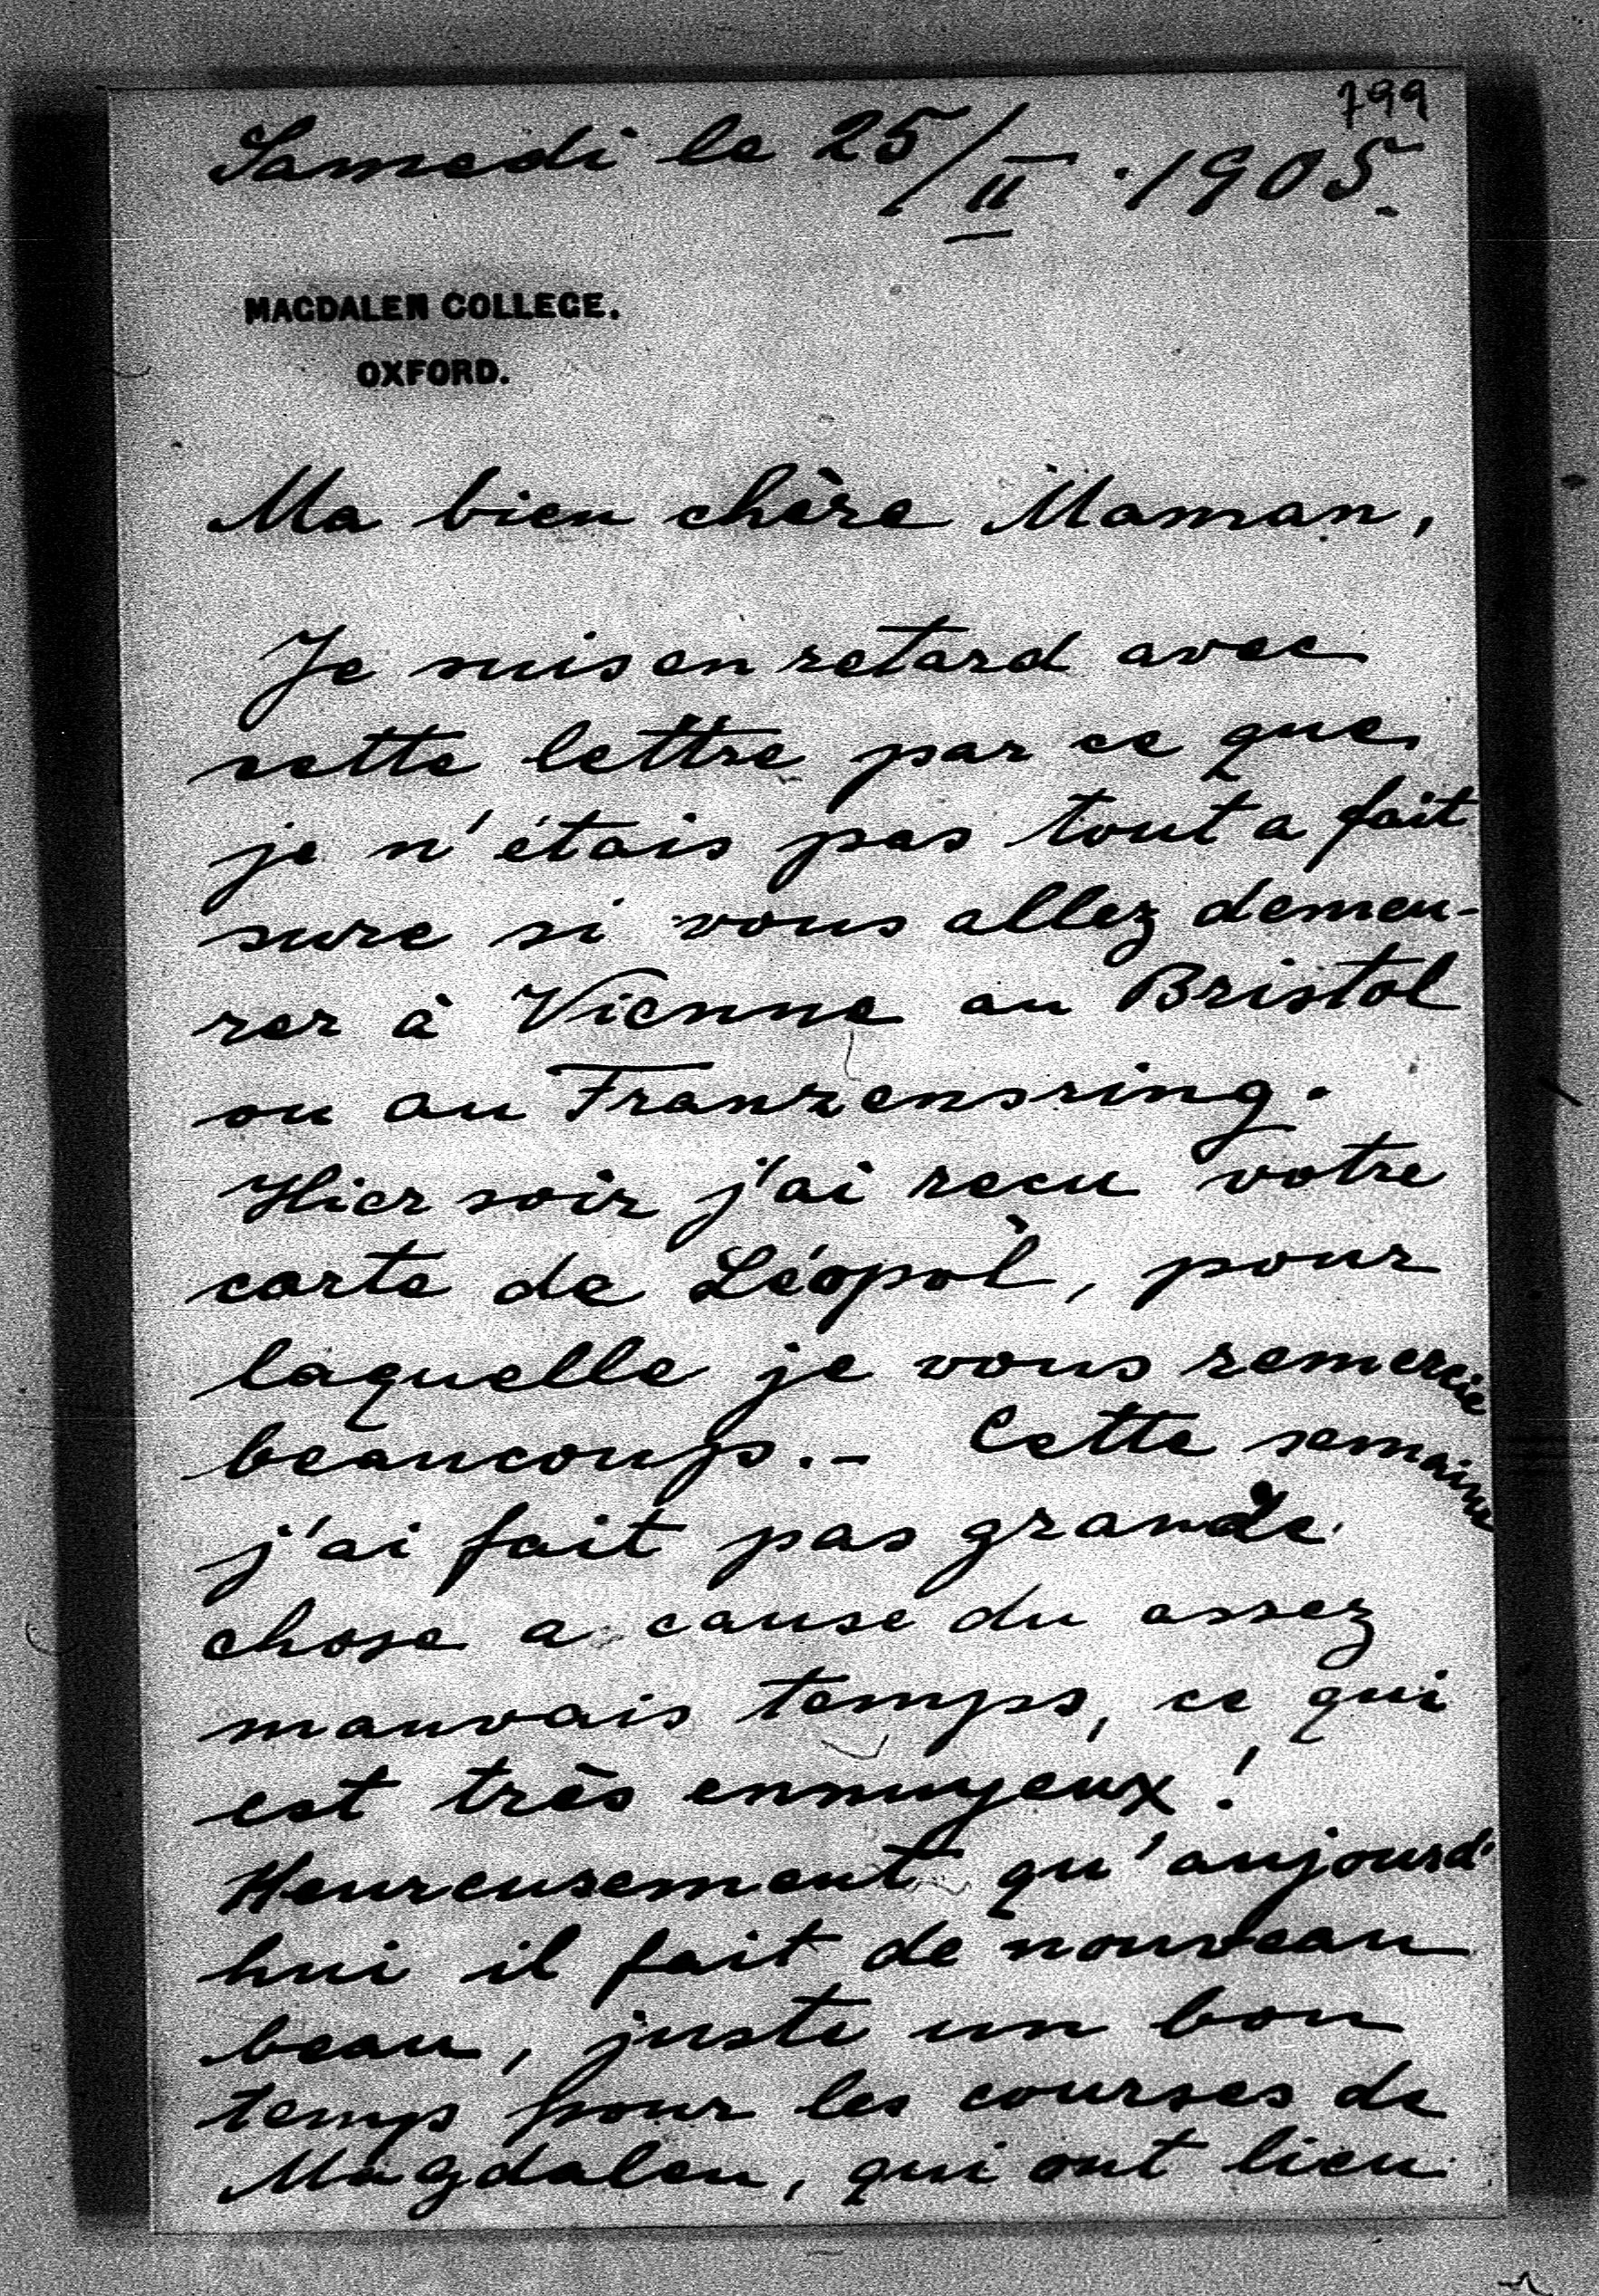 799
Samedi le 25/II.1905.
MAGDALEN COLLEGE.
OXFORD.
Ma bien chère Maman,
Je suis en retard avec
cette lettre par ce que
je n'étais pas tout a fait
sure si vous allez demeu-
rer à Vienne au Bristol
ou au Franzensring.
Hier soir j'ai recu votre
carte de Léopol, pour
laquelle je vous remercie
beaucoup.- Cette semaine
j'ai fait pas grande
chose a cause du assez
mauvais temps, ce qui
est très ennuyeux!
Heureusement qu'aujourd'
hui il fait de nouveau
beau, juste un bon
temps pour les courses de
Magdalen, qui ont lieu